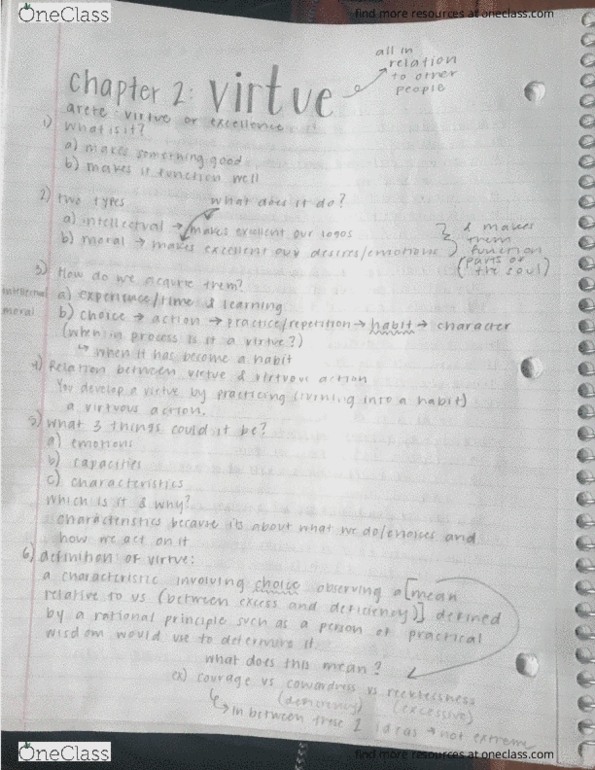 OneClass
find more resources at oneclass.com
all in
relation
to other
people
chapter 2: virtue
arete: virtue or excellence
1) What is it?
a) makes something good
b) makes it function well
2) two types what does it do?
a) intellectual → makes excellent our logos
b) moral → makes excellent our desires/emotions
& makes
them
function
(parts of
the soul)
3) How do we acquire them?
intellectual a) experience/time & learning
moral b) choice → action → practice/repetition → habit → character
(when in process is it a virtue?)
↳ when it has become a habit
4) Relation between virtue & virtuous action
You develop a virtue by practicing (turning into a habit)
a virtuous action.
5) what 3 things could it be?
a) emotions
b) capacities
c) characteristics
which is it & why?
characteristics because its about what we do/choices and
how we act on it
6) definition of virtue:
a characteristic involving choice observing a [mean
relative to us (between excess and deficiency)] defined
by a rational principle such as a person of practical
wisdom would use to determine it.
what does this mean?
ex) courage vs cowardness vs recklessness
(deficiency) (excessive)
↳ in between these 2 ideas → not extreme
OneClass
find more resources at oneclass.com